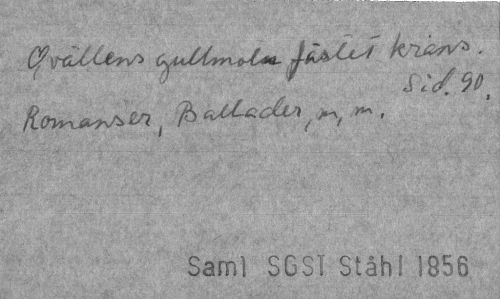 Qvällens gullmoln fästet kräns.
Sid. 90.
Romanser, Ballader, m, m.
Saml SGSI Ståhl 1856